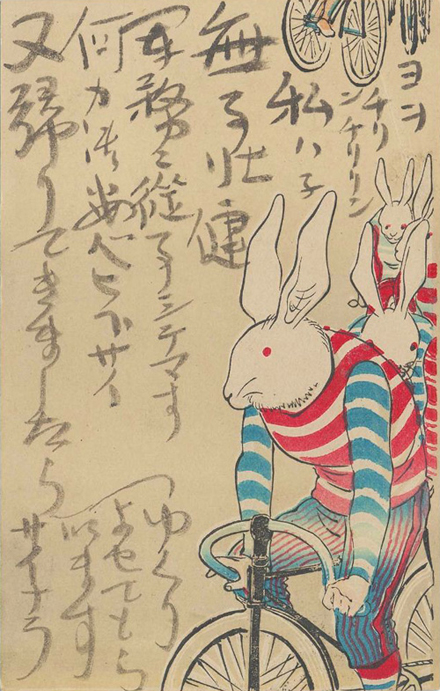 チリ
ンチリリン
私ハ
無事壮健
軍務ニ從事シテマす
何カ御安心下サイ
又歸りてきましたら
ゆくり
よせてもら
います
サイナラ